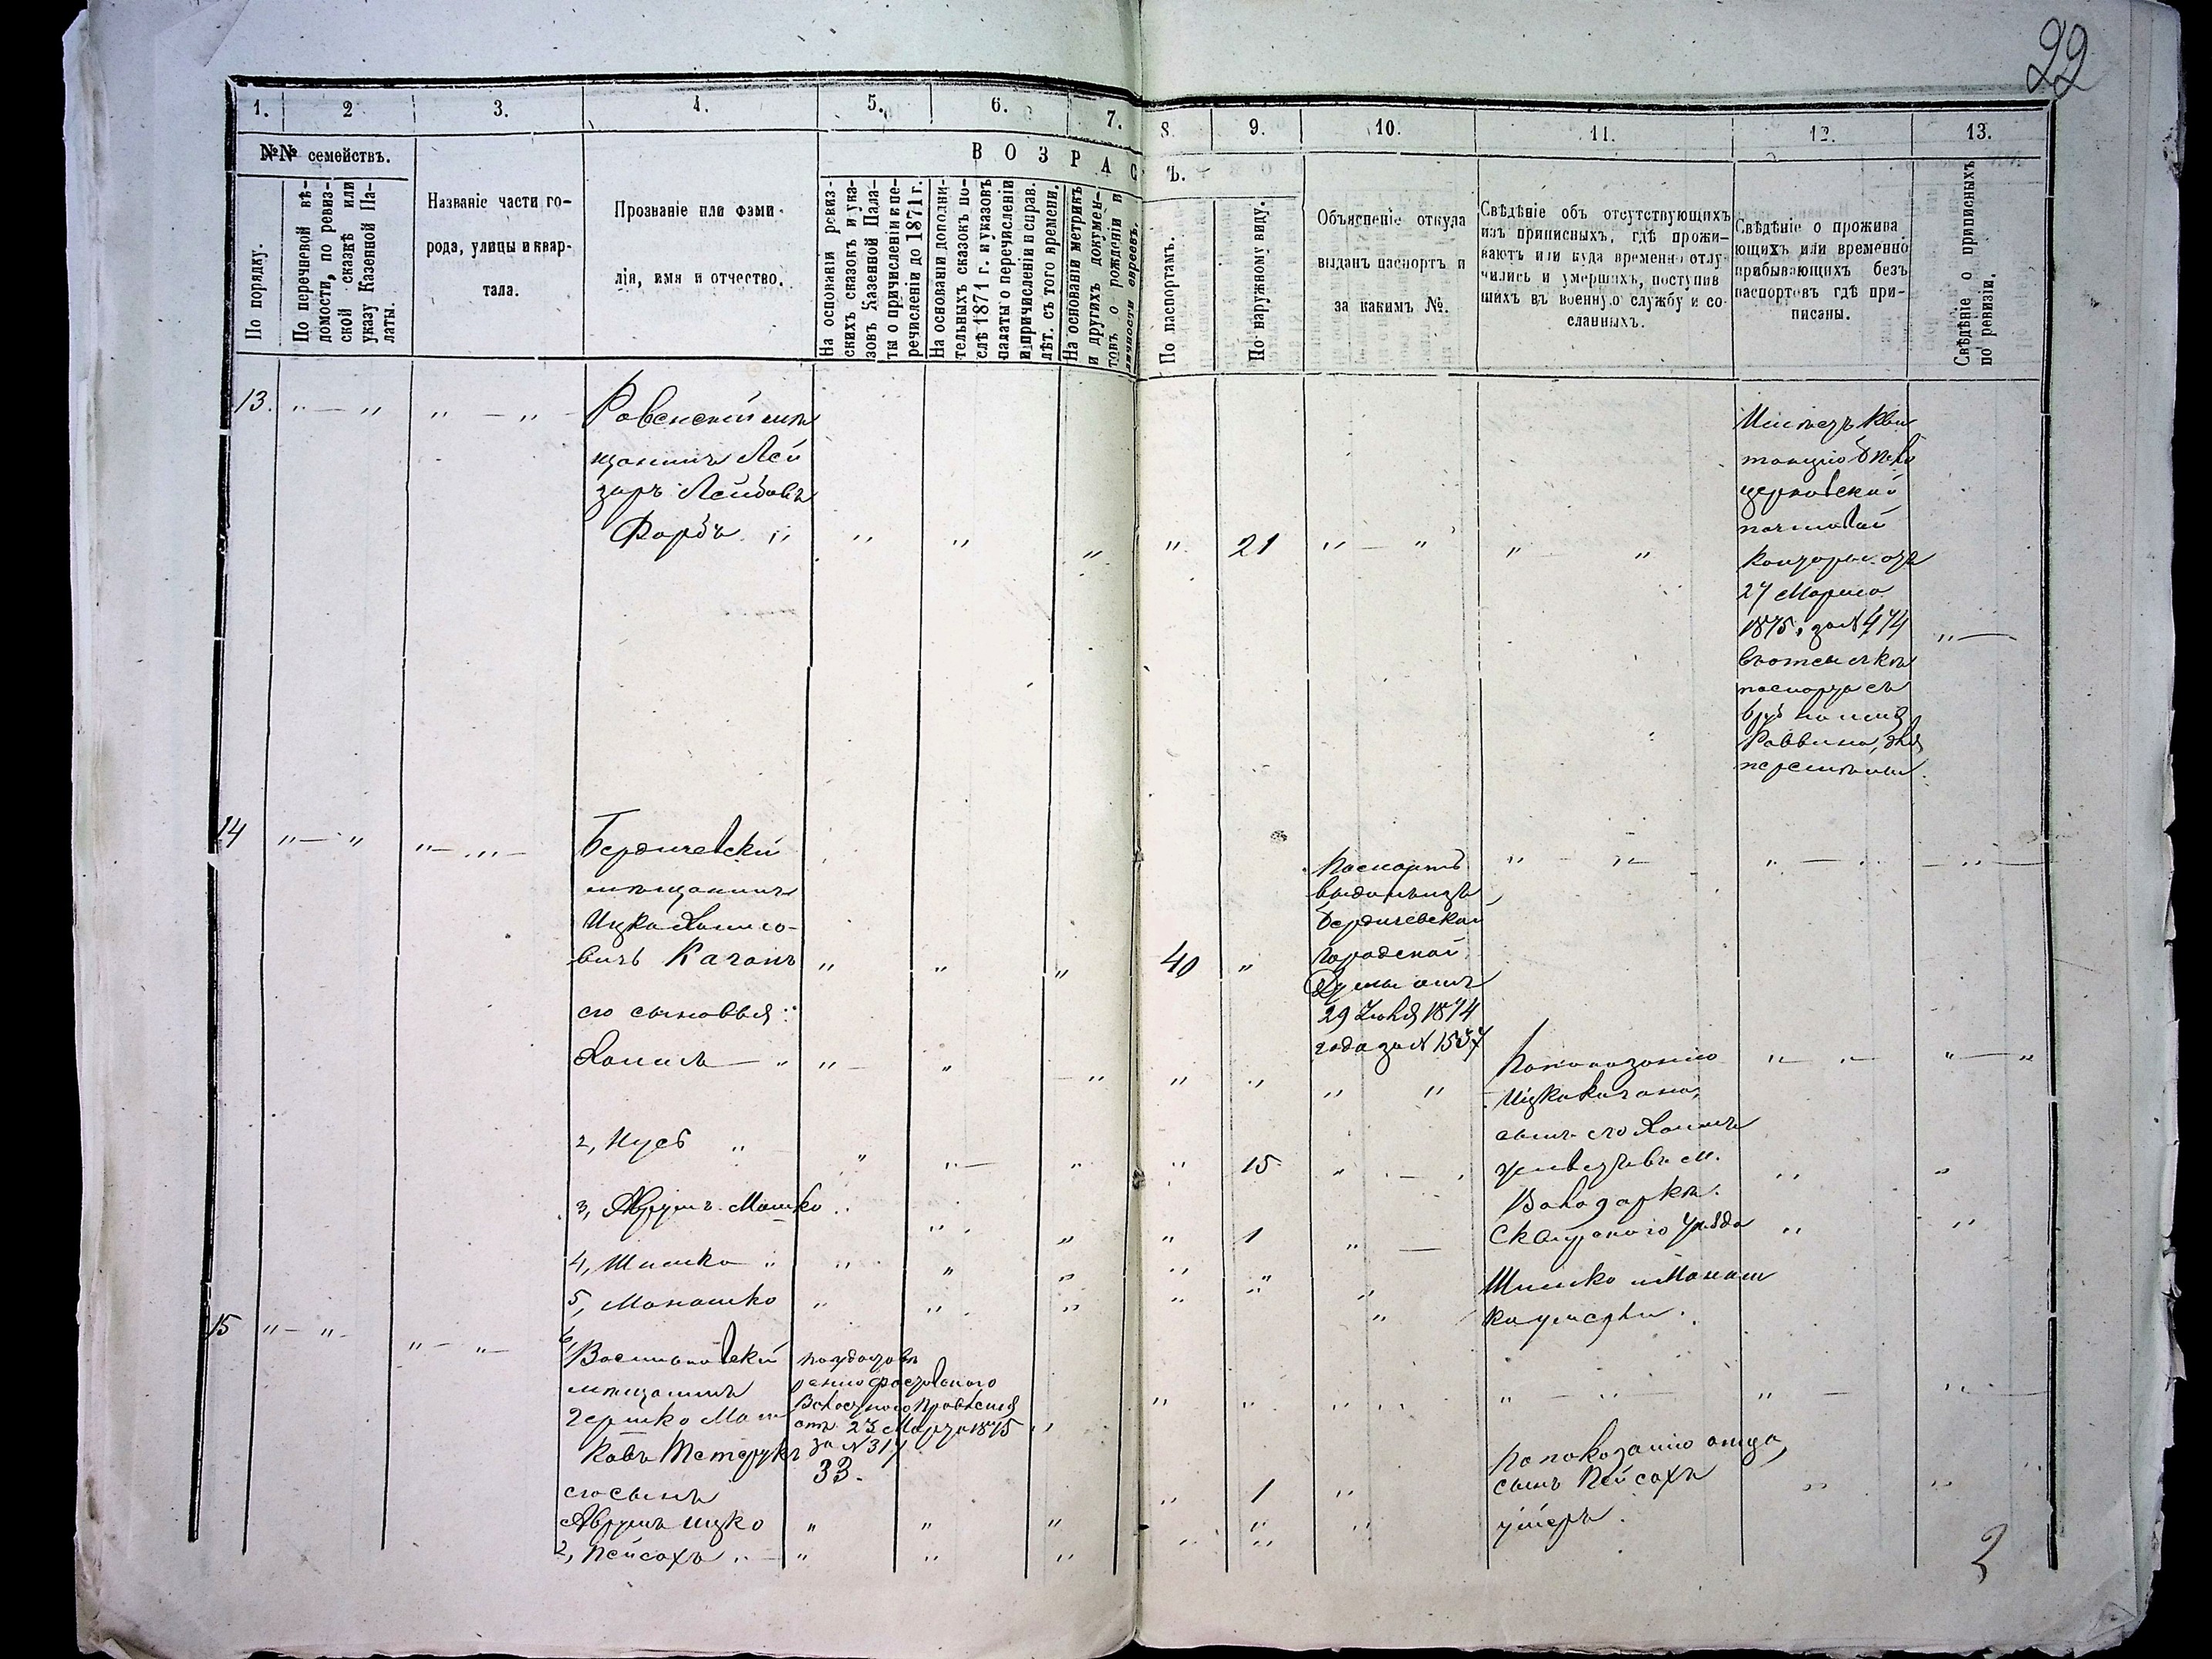 22
1. 2 3. 4. 5. 6. 7. 8. 9. 10. 11. 12. 13.
№№ семействъ.
ВОЗРАСТЪ.
По порядку.
По перечневой вѣ-
домости, по ревиз-
ской сказкѣ или
указу Казенной Па-
латы.
Названіе части го-
рода, улицы и квар-
тала.
Прозваніе или фами-
лія, имя и отчество.
На основаніи ревиз-
скихъ сказокъ и ука-
зовъ Казенной Пала-
ты о причисленіи и пе-
речисленіи до 1871 г.
На основаніи дополни-
тельныхъ сказокъ по-
слѣ 1871 г. и указовъ
палаты о перечисленіи
и причисленіи и справ.
лѣт. съ того времени.
На основаніи метрикъ
и другихъ докумен-
товъ о рожденіи и
личности евреевъ.
По паспортамъ.
По наружному виду.
Объясненіе откуда
выданъ паспортъ и
за какимъ №.
Свѣдѣніе объ отсутствующихъ
изъ приписныхъ, гдѣ прожи-
ваютъ или куда временно отлу-
чились и умершихъ, поступив
шихъ въ военную службу и со-
сланныхъ.
Свѣдѣніе о прожива
ющихъ или временно
прибывающихъ безъ
паспортовъ гдѣ при-
писаны.
Свѣдѣніе о приписныхъ
по ревизіи.
13.
Ровенскій мѣ
щанинъ Лей
заръ Лейбовъ
Фарбъ
21
Имѣетъ кви
танцію Бѣло
церковской
почтовой
конторы отъ
27 Марта
1875 г за № 474
въ отсылкѣ
паспорта съ
руб на имя
Раввина, для
перемѣны.
14
Бердичевскій
мѣщанинъ
Ицко Хаимо-
вичъ Каганъ
40
Паспортъ
выданъ изъ
Бердичевской
Городской
Думы отъ
29 Іюля 1874
года за № 1537
его сыновья:
Хаимъ
2, Нусь
15
3, Аврумъ Мошко
1
4, Шимко
5, Монашко
По показанію
Ицка Кагана,
сынъ его Хаимъ
живетъ въ м.
Володаркѣ
Сквирскаго Уѣзда
Шимко и Монаш
ка умерли.
15
Васильковскій
мѣщанинъ
Гершко Мош
ковъ Тетерукъ
по удостовѣ
ренію Фастовскаго
Волостнаго Правленія
отъ 23 Марта 1875
за № 317
33.
его сынъ
Аврумъ Ицко
1
2, Пейсахъ
По показанію отца,
сынъ Пейсахъ
умеръ.